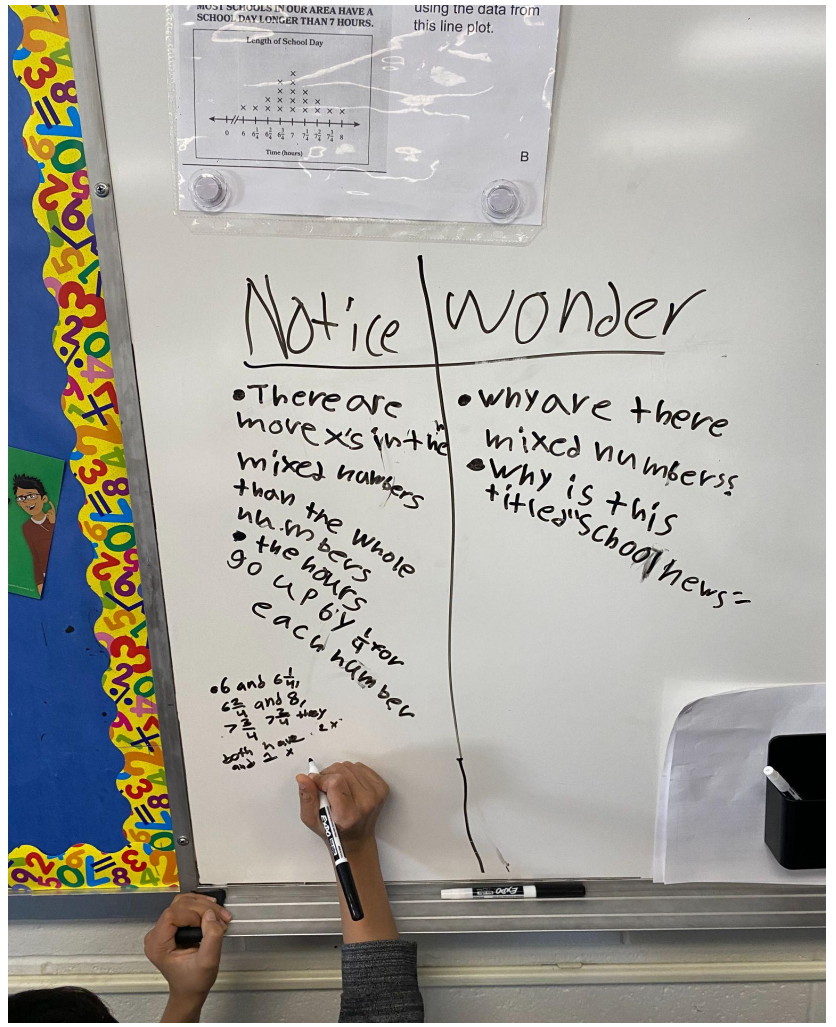 MOST SCHOOLS IN OUR AREA HAVE A
SCHOOL DAY LONGER THAN 7 HOURS.
Length of School Day
0 6 6 1/4 6 2/4 6 3/4 7 7 1/4 7 2/4 7 3/4 8
Time (hours)
using the data from
this line plot.
B
Notice
•There are
more x's in the
mixed numbers
than the whole
numbers
• the hours
go up by 1/4 for
each number
•6 and 6 1/4,
and 8,
they
both have 2x
and 1 x
Wonder
•why are there
mixed numbers?
•Why is this
titled "School news"
EXPO
EXPO